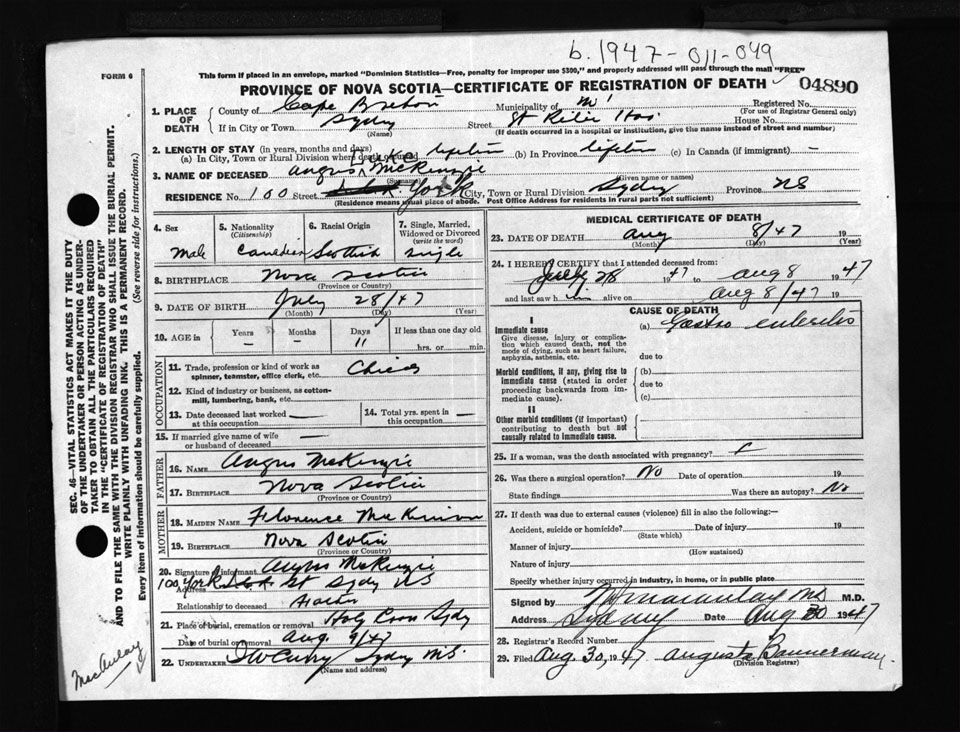 b. 1947-011-049
FORM 6
This form if placed in an envelope, marked "Dominion Statistics—Free, penalty for improper use $300," and properly addressed will pass through the mail "FREE"
PROVINCE OF NOVA SCOTIA—CERTIFICATE OF REGISTRATION OF DEATH 04890
1. PLACE OF DEATH
County of Cape Breton Municipality of Registered No.
(For use of Registrar General only)
If in City or Town Sydney Street St House No.
(Name) (If death occurred in a hospital or institution, give the name instead of street and number)
2. LENGTH OF STAY (in years, months and days)
(a) In City, Town or Rural Division where death occurred lifetime (b) In Province lifetime (c) In Canada (if immigrant) -
3. NAME OF DECEASED Angus McKenzie
(Given name or names)
RESIDENCE No. 100 Street York City, Town or Rural Division Sydney Province NS
(Residence means usual place of abode. Post Office Address for residents in rural parts not sufficient)
4. Sex Male
5. Nationality (Citizenship) Canadian
6. Racial Origin Scottish
7. Single, Married, Widowed or Divorced (write the word) Single
8. BIRTHPLACE Nova Scotia
(Province or Country)
9. DATE OF BIRTH July 28/47
(Month) (Day) (Year)
10. AGE in Years - Months - Days 11 If less than one day old
hrs. or min.
OCCUPATION
11. Trade, profession or kind of work as spinner, teamster, office clerk, etc.
12. Kind of industry or business, as cotton-mill, lumbering, bank, etc.
13. Date deceased last worked at this occupation
14. Total yrs. spent in this occupation
15. If married give name of wife or husband of deceased
FATHER
16. NAME Angus McKenzie
17. BIRTHPLACE Nova Scotia
(Province or Country)
MOTHER
18. MAIDEN NAME Florence MacKinnon
19. BIRTHPLACE Nova Scotia
(Province or Country)
20. Signature of informant Angus McKenzie
Address 100 York St Sydney NS
Relationship to deceased Father
21. Place of burial, cremation or removal Holy Cross Sydney
Date of burial or removal Aug. 9/47
22. UNDERTAKER Sydney N.S.
(Name and address)
MEDICAL CERTIFICATE OF DEATH
23. DATE OF DEATH Aug 8/47 19
(Month) (Day) (Year)
24. I HEREBY CERTIFY that I attended deceased from:
July 28 1947 to Aug 8 1947
and last saw h im alive on Aug 8/47 19
CAUSE OF DEATH
I
Immediate cause (a) Gastro enteritis
Give disease, injury or complication which caused death, not the mode of dying, such as heart failure, asphyxia, asthenia, etc.
due to
Morbid conditions, if any, giving rise to immediate cause (stated in order proceeding backwards from immediate cause).
(b)
due to
(c)
II
Other morbid conditions (if important) contributing to death but not causally related to immediate cause.
25. If a woman, was the death associated with pregnancy?
26. Was there a surgical operation? No Date of operation 19
State findings Was there an autopsy? No
27. If death was due to external causes (violence) fill in also the following:—
Accident, suicide or homicide? Date of injury 19
(State which)
Manner of injury
(How sustained)
Nature of injury
Specify whether injury occurred in industry, in home, or in public place
Signed by Macaulay M.D.
Sydney Date Aug 30 1947
28. Registrar's Record Number
29. Filed Aug. 30, 1947 Augusta Bannerman
(Division Registrar)
SEC. 46—VITAL STATISTICS ACT MAKES IT THE DUTY OF THE UNDERTAKER OR PERSON ACTING AS UNDERTAKER TO OBTAIN ALL THE PARTICULARS REQUIRED IN THE "CERTIFICATE OF REGISTRATION OF DEATH"
AND TO FILE THE SAME WITH THE DIVISION REGISTRAR WHO SHALL ISSUE THE BURIAL PERMIT.
WRITE PLAINLY WITH UNFADING INK. THIS IS A PERMANENT RECORD.
Every item of information should be carefully supplied. (See reverse side for instructions.)
MacAulay